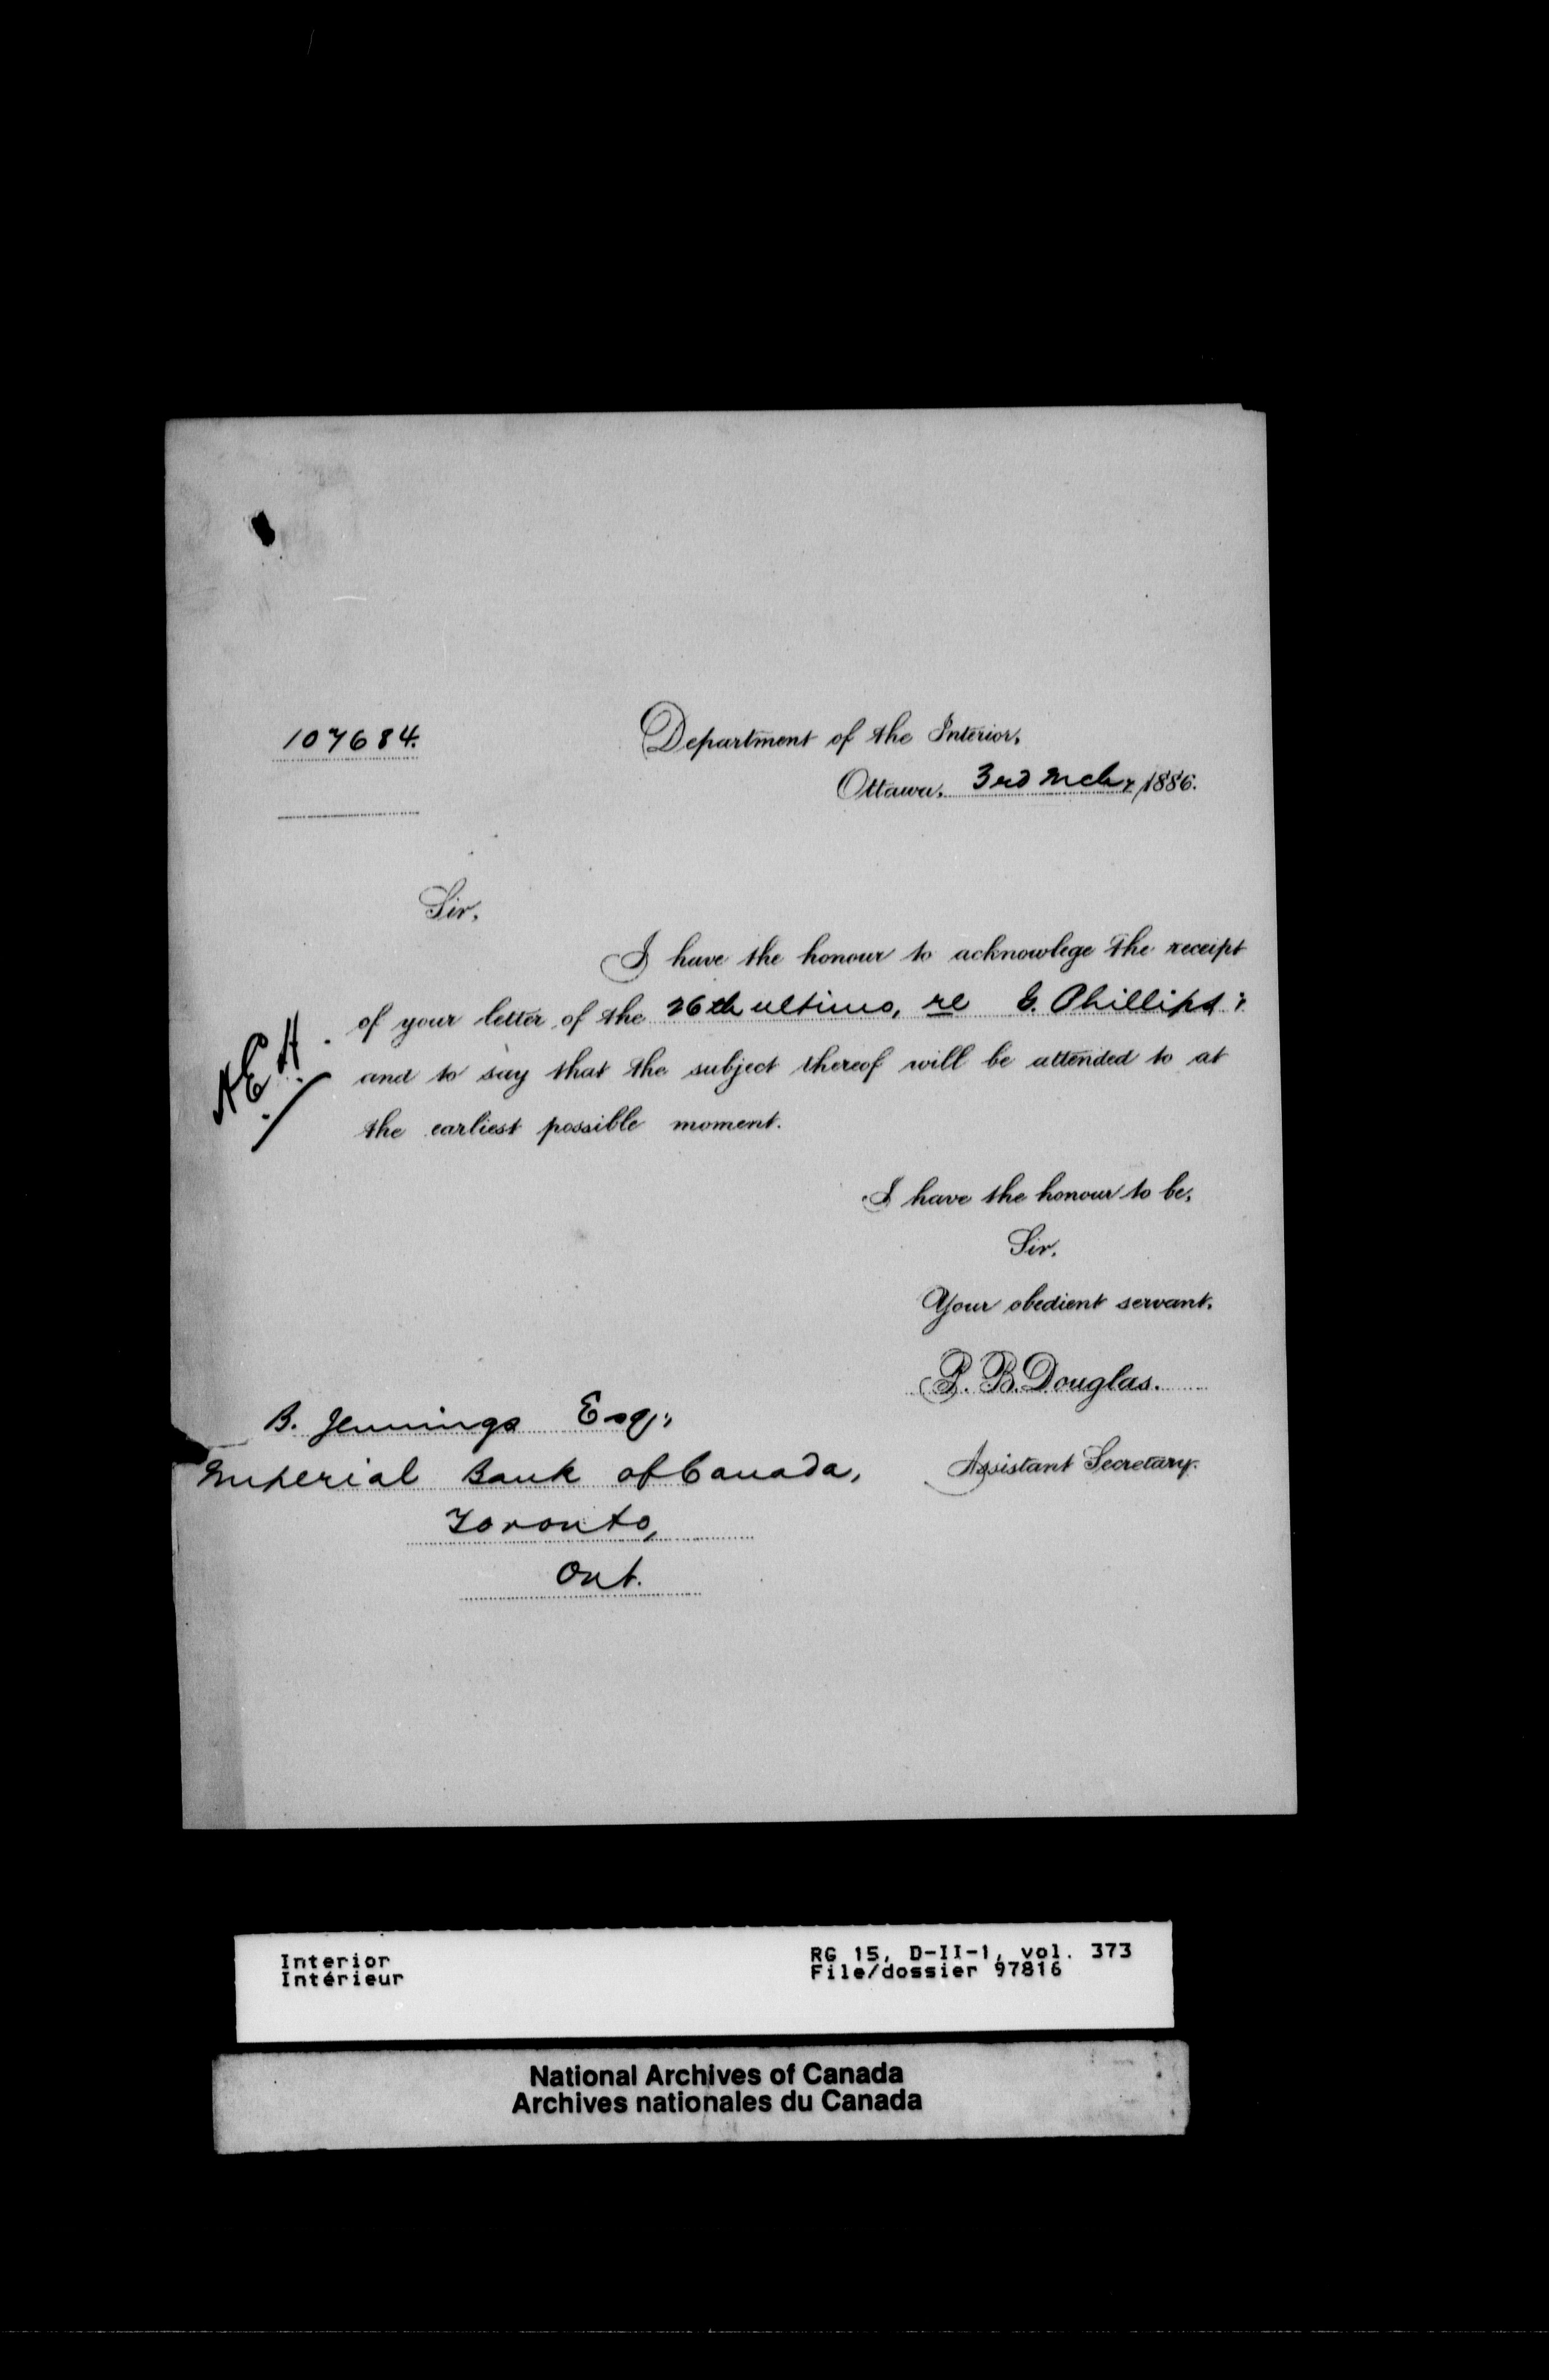 107684.
Department of the Interior,
Ottawa, 3rd Mch, 1886.
Sir,
I have the honour to acknowlege the receipt
of your letter of the 26th ultimo, re E. Phillips;
and to say that the subject thereof will be attended to at
the earliest possible moment.
I have the honour to be,
Sir,
Your obedient servant,
P. B. Douglas.
Assistant Secretary.
B. Jennings Esq.,
Imperial Bank of Canada,
Toronto,
Ont.
Interior
Intérieur
RG 15, D-II-1, vol. 373
File/dossier 97816
National Archives of Canada
Archives nationales du Canada